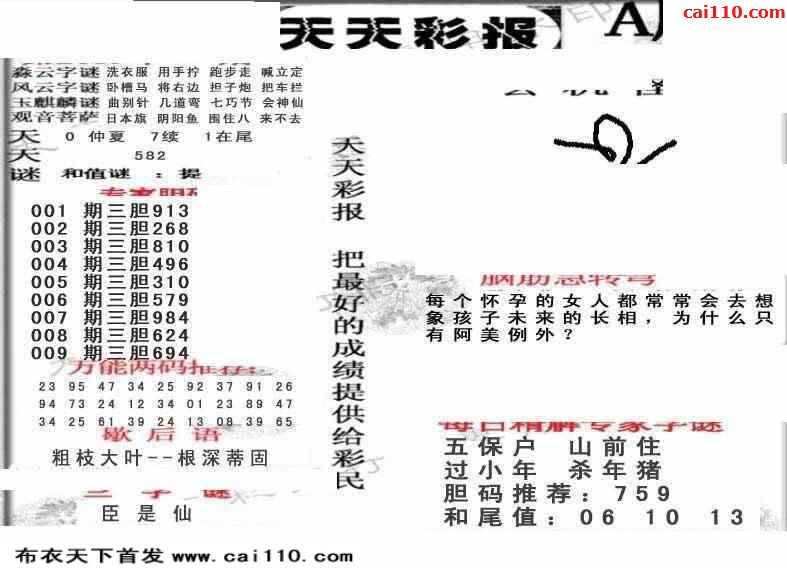 天天彩报
cai110.com
森云字谜 洗衣服 用手拧 跑步走 喊立定
风云字谜 卧槽马 将右边 担子炮 把车拦
玉麒麟谜 曲别针 几道弯 七巧节 会神仙
观音菩萨 日本旗 阴阳鱼 围住八 来不去
天 0 仲夏 7续 1在尾
天 582
谜 和值谜 : 提
001 期三胆913
002 期三胆268
003 期三胆810
004 期三胆496
005 期三胆310
006 期三胆579
007 期三胆984
008 期三胆624
009 期三胆694
万能两码推荐:
23 95 47 34 25 92 37 91 26
94 73 24 12 34 01 23 89 47
34 25 61 39 24 13 08 39 65
歇后语
粗枝大叶--根深蒂固
三字谜
臣是仙
布衣天下首发 www.cai110.com
天天彩报 把最好的成绩提供给彩民
脑筋急转弯
每个怀孕的女人都常常会去想
象孩子未来的长相，为什么只
有阿美例外？
每日精解专家字谜
五保户 山前住
过小年 杀年猪
胆码推荐: 759
和尾值: 06 10 13